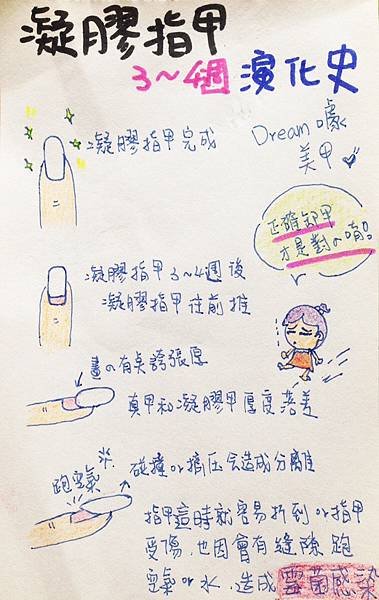 凝膠指甲
3~4週 演化史
凝膠指甲完成
Dream嚎
美甲
正確卸甲
才是對の唷。
凝膠指甲3~4週後
凝膠指甲往前推
畫の有点誇張厚
真甲和凝膠甲厚度落差
跑空氣
水.
碰撞or擠压会造成分離
指甲這時就容易折到or指甲
受傷,也因會有縫隙跑
空氣or水,造成霉菌感染